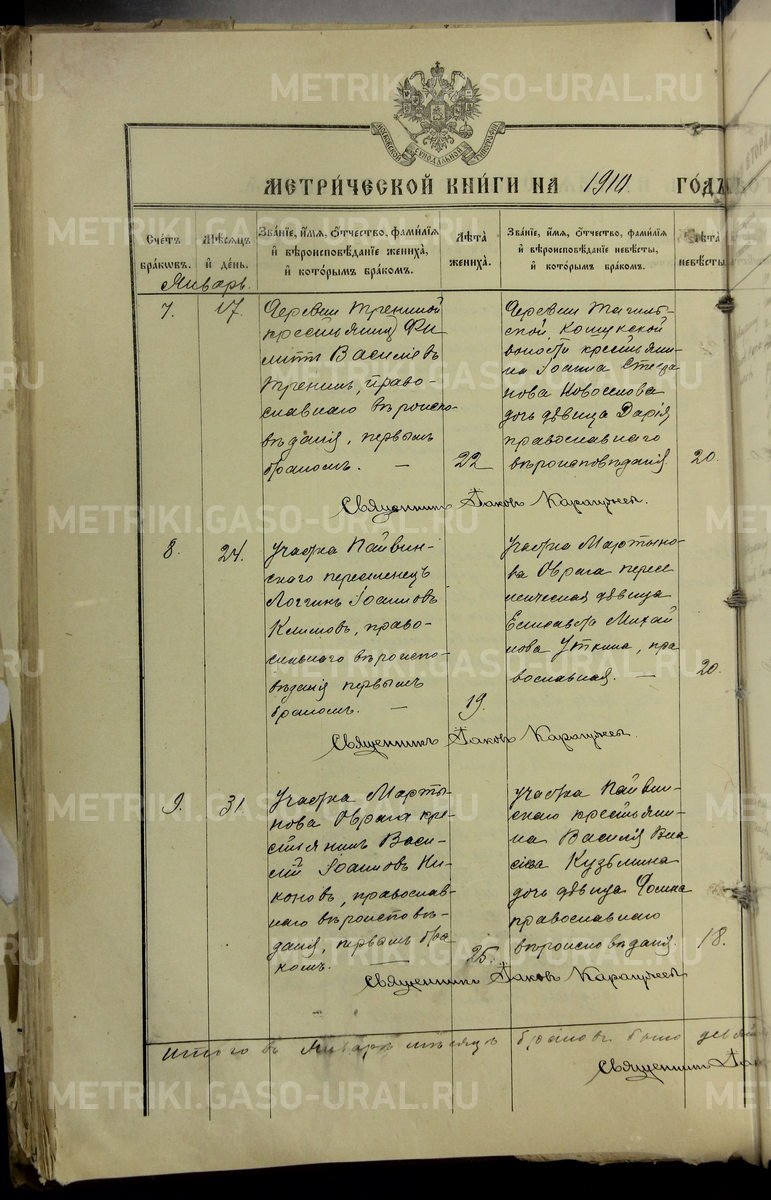 МОСКОВСКОЙ СѴНОДАЛЬНОЙ ТИПОГРАФІИ
МЕТРИ́ЧЕСКОЙ КНИ́ГИ НА 1910. ГО́ДЪ
Сче́тъ бра́ковъ.
Мѣ́сяцъ и́ де́нь.
Зва́нїе, и́мя, ѻ́тчество, фами́лїя
и́ вѣроисповѣ́данїе жениха̀,
и́ кото́рымъ бра́комъ.
Лѣ́та̀ жениха̀.
Зва́нїе, и́мя, ѻ́тчество, фами́лїя
и́ вѣроисповѣ́данїе невѣ́сты,
и́ кото́рымъ бра́комъ.
Лѣ́та̀ невѣ́сты.
Январь.
7.
17.
Деревни Трениной
крестьянинъ Фи-
липпъ Василіевъ
Тренинъ, право-
славнаго вѣроиспо-
вѣданія, первымъ
бракомъ. —
22
Деревни Тагиль-
ской Кошукской
волости крестьяни-
на Іоанна Стефа
нова Новоселова
дочь дѣвица Дарія
православнаго
вѣроисповѣданія.
20.
Священникъ Іаковъ
8.
24.
Участка Пайвин-
скаго переселенецъ
Логгинъ Іоанновъ
Климовъ, право-
славнаго вѣроиспо-
вѣданія первымъ
бракомъ. —
19.
Участка Мартыно-
ва Оврага пересе
ленческая дѣвица
Елисавета Михай
лова Уткина, пра
вославная. —
20.
Священникъ Іаковъ
9.
31.
Участка Марты-
нова Оврага кре-
стьянинъ Васи-
лій Іоанновъ Ни-
коновъ, православ-
наго вѣроисповѣ-
данія, первымъ бра
комъ. —
25.
Участка Пайвин-
скаго крестьяни-
на Василія Вла
сіева Кузьмина
дочь дѣвица Фотина
православнаго
вѣроисповѣданія.
18.
Священникъ Іаковъ
Итого въ Январѣ мѣсяцѣ браковъ было девять
Священникъ Іаковъ
METRIKI.GASO-URAL.RU